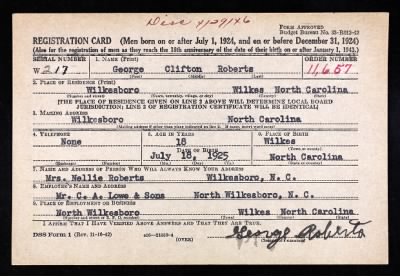 Disc 4/29/46
FORM APPROVED
Budget Bureau No. 33-R012-42
REGISTRATION CARD (Men born on or after July 1, 1924, and on or before December 31, 1924)
(Also for the registration of men as they reach the 18th anniversary of the date of their birth on or after January 1, 1943.)
SERIAL NUMBER 1. NAME (Print) ORDER NUMBER
W 217 George Clifton Roberts 11,657
2. PLACE OF RESIDENCE (Print)
Wilkesboro Wilkes North Carolina
[THE PLACE OF RESIDENCE GIVEN ON LINE 2 ABOVE WILL DETERMINE LOCAL BOARD
JURISDICTION; LINE 2 OF REGISTRATION CERTIFICATE WILL BE IDENTICAL]
3. MAILING ADDRESS
Wilkesboro North Carolina
[Mailing address if other than place indicated on line 2. If same, insert word same]
4. TELEPHONE 5. AGE IN YEARS 6. PLACE OF BIRTH
None 18 Wilkes
DATE OF BIRTH
July 18, 1925 North Carolina
7. NAME AND ADDRESS OF PERSON WHO WILL ALWAYS KNOW YOUR ADDRESS
Mrs. Nellie Roberts Wilkesboro, N. C.
8. EMPLOYER'S NAME AND ADDRESS
Mr. C. A. Lowe & Sons North Wilkesboro, N. C.
9. PLACE OF EMPLOYMENT OR BUSINESS
North Wilkesboro Wilkes North Carolina
I AFFIRM THAT I HAVE VERIFIED ABOVE ANSWERS AND THAT THEY ARE TRUE.
George Roberts
DSS Form 1 (Rev. 11-16-42) (OVER)